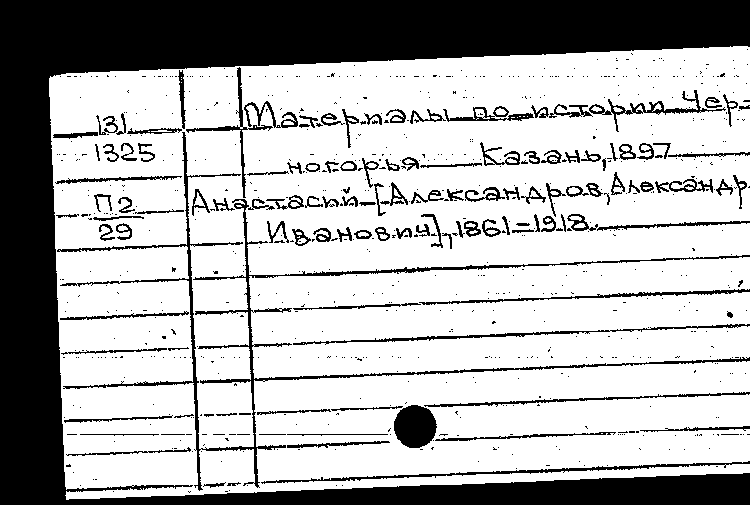 131 Материалы по истории Чер-
1325 ногорья Казань, 1897
П2 Анастасий [Александров, Александр
29 Иванович], 1861-1918.